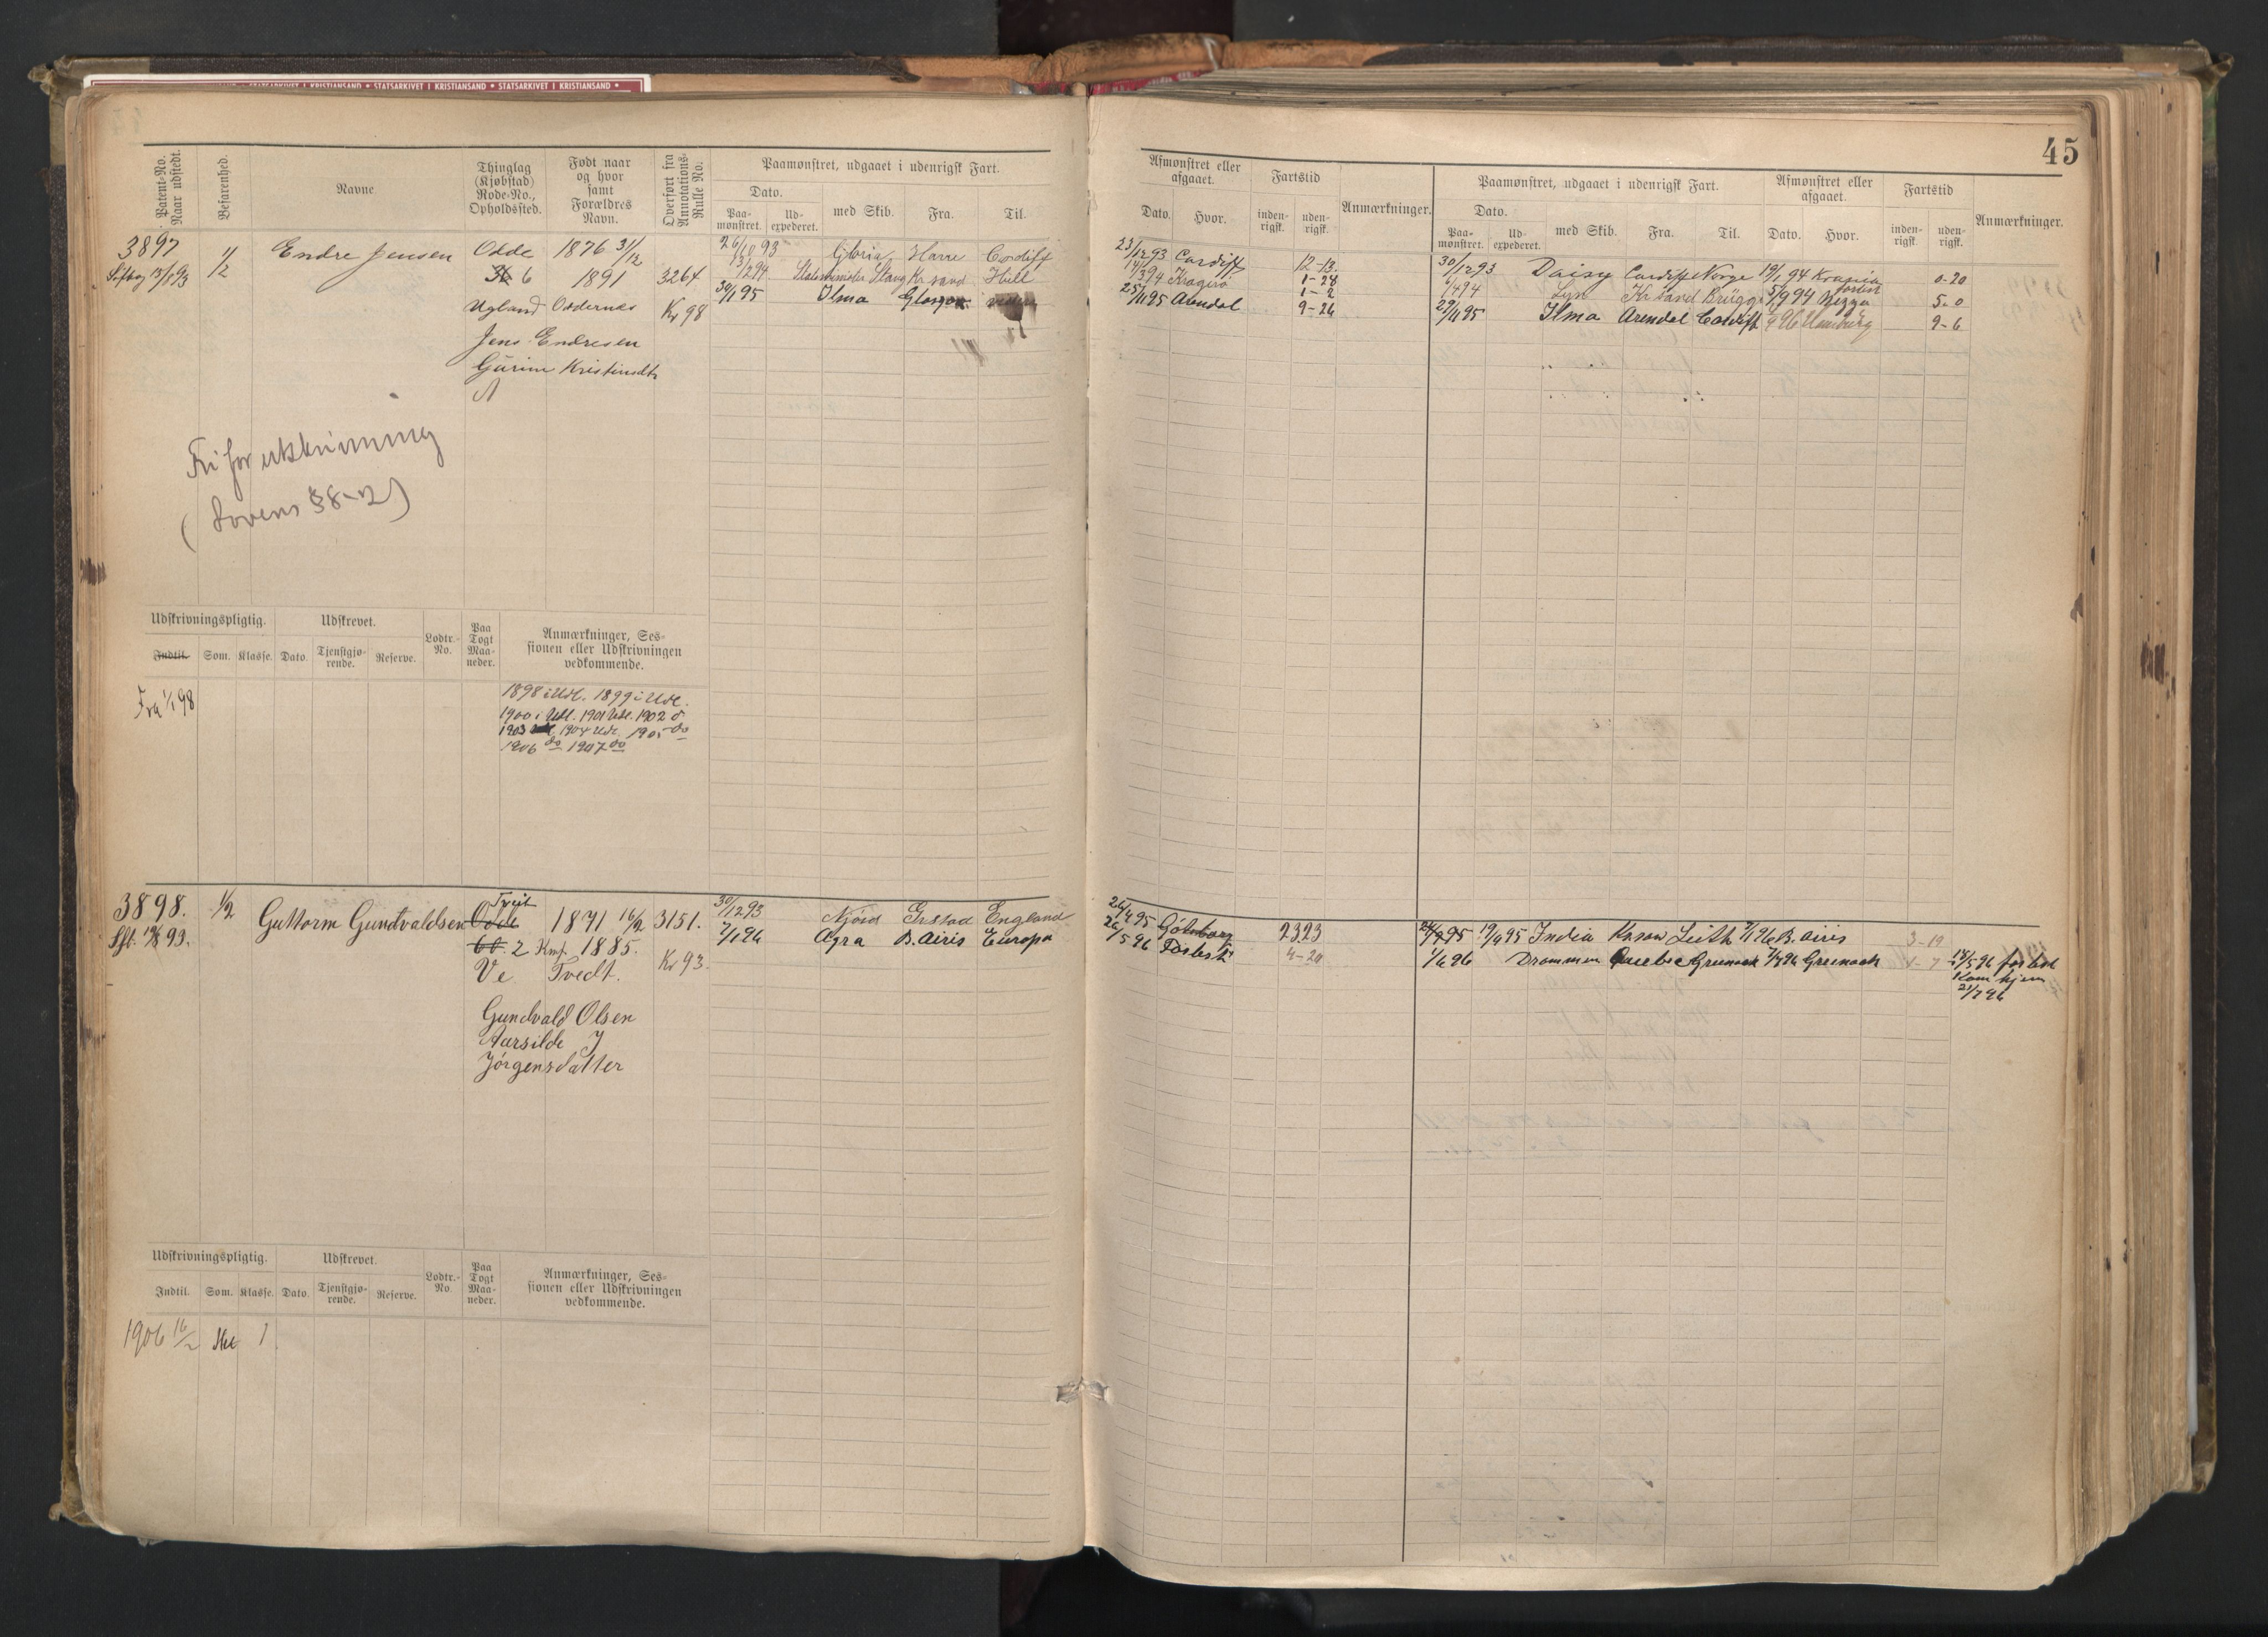 STATSARKIVET I KRISTIANSAND • STATSARKIVET I KRISTIANSAND • STATSARKIVET I KRISTIANSAND •
45
Patent-No. Naar udstedt.
Befarenhed.
Navne
Thinglag (Kjøbstad) Rode-No., Opholdssted.
Født naar og hvor samt Forældres Navn.
Overført fra Annotations-Rulle No.
Paamønstret, udgaaet i udenrigsk Fart.
Dato.
Paa-mønstret.
Ud-expederet.
med Skib.
Fra.
Til.
3897
1/2
Endre Jensen
Odde 1876 31/12
6 1891 3264
Ugland Oddernes Kr 98
Jens Endresen
Gurine Kristinsdtr
26/10 93 Gloria Havre Cardiff
13/2 94 Statsminister Stang Kr.sand Hull
30/1 95 Ilma Glasgow
Fri for utskrivning
(Lovens §8-2)
Udskrivningspligtig.
Udskrevet.
Lodtr.-No.
Paa Togt Maa-neder.
Anmærkninger, Ses-sionen eller Udskrivningen vedkommende.
Indtil.
Som.
Klasse.
Dato.
Tjenstgjø-rende.
Reserve.
Fra 1/1 98
1898 i Udl. 1899 i Udl.
1900 i Udl. 1901 Udl. 1902 d
1903 1904 Udl. 1905 do
1906 do 1907 do
3898.
1/2
Guttorm Gundvaldsen
Tveit
Odde 1871 16/2 3151.
60. 2 Knf. 1885.
Ve Tvedt. Kr 93.
Gundvald Olsen
Aasilde J
Jörgensdatter
30/12 93 Njörd Grstad England
7/1 96 Agra B. Airis Europa
Udskrivningspligtig.
Udskrevet.
Lodtr.-No.
Paa Togt Maa-neder.
Anmærkninger, Ses-sionen eller Udskrivningen vedkommende.
Indtil.
Som.
Klasse.
Dato.
Tjenstgjø-rende.
Reserve.
1906 16/2 1
Afmønstret eller afgaaet.
Fartstid
Anmærkninger.
Paamønstret, udgaaet i udenrigsk Fart.
Afmønstret eller afgaaet.
Fartstid
Anmærkninger.
Dato.
Hvor.
inden-rigsk.
uden-rigsk.
Dato.
Paa-mønstret.
Ud-expederet.
med Skib.
Fra.
Til.
Dato.
Hvor.
inden-rigsk.
uden-rigsk.
23/12 93 Cardiff 12-13. 30/12 93 Daisy Cardiff Norge 19/1 94 0-20
14/3 94 Kragerø 1-28
1-2
6/4 94 Lyn Kr sand Brügge 5/9 94 5-0
25/11 95 Arendal 9-26 29/11 95 Ilma Arendal Cardiff 96 Hamburg 9-6
24/4 95 Göteborg 23 23 19/9 95 India Leith 7/1 96 B. Airis 3-19
26/5 96 4-20 1/6 96 Drammen Quebec Greenock 7/7 96 Greenock 1-7
Kom hjem
21/7 96